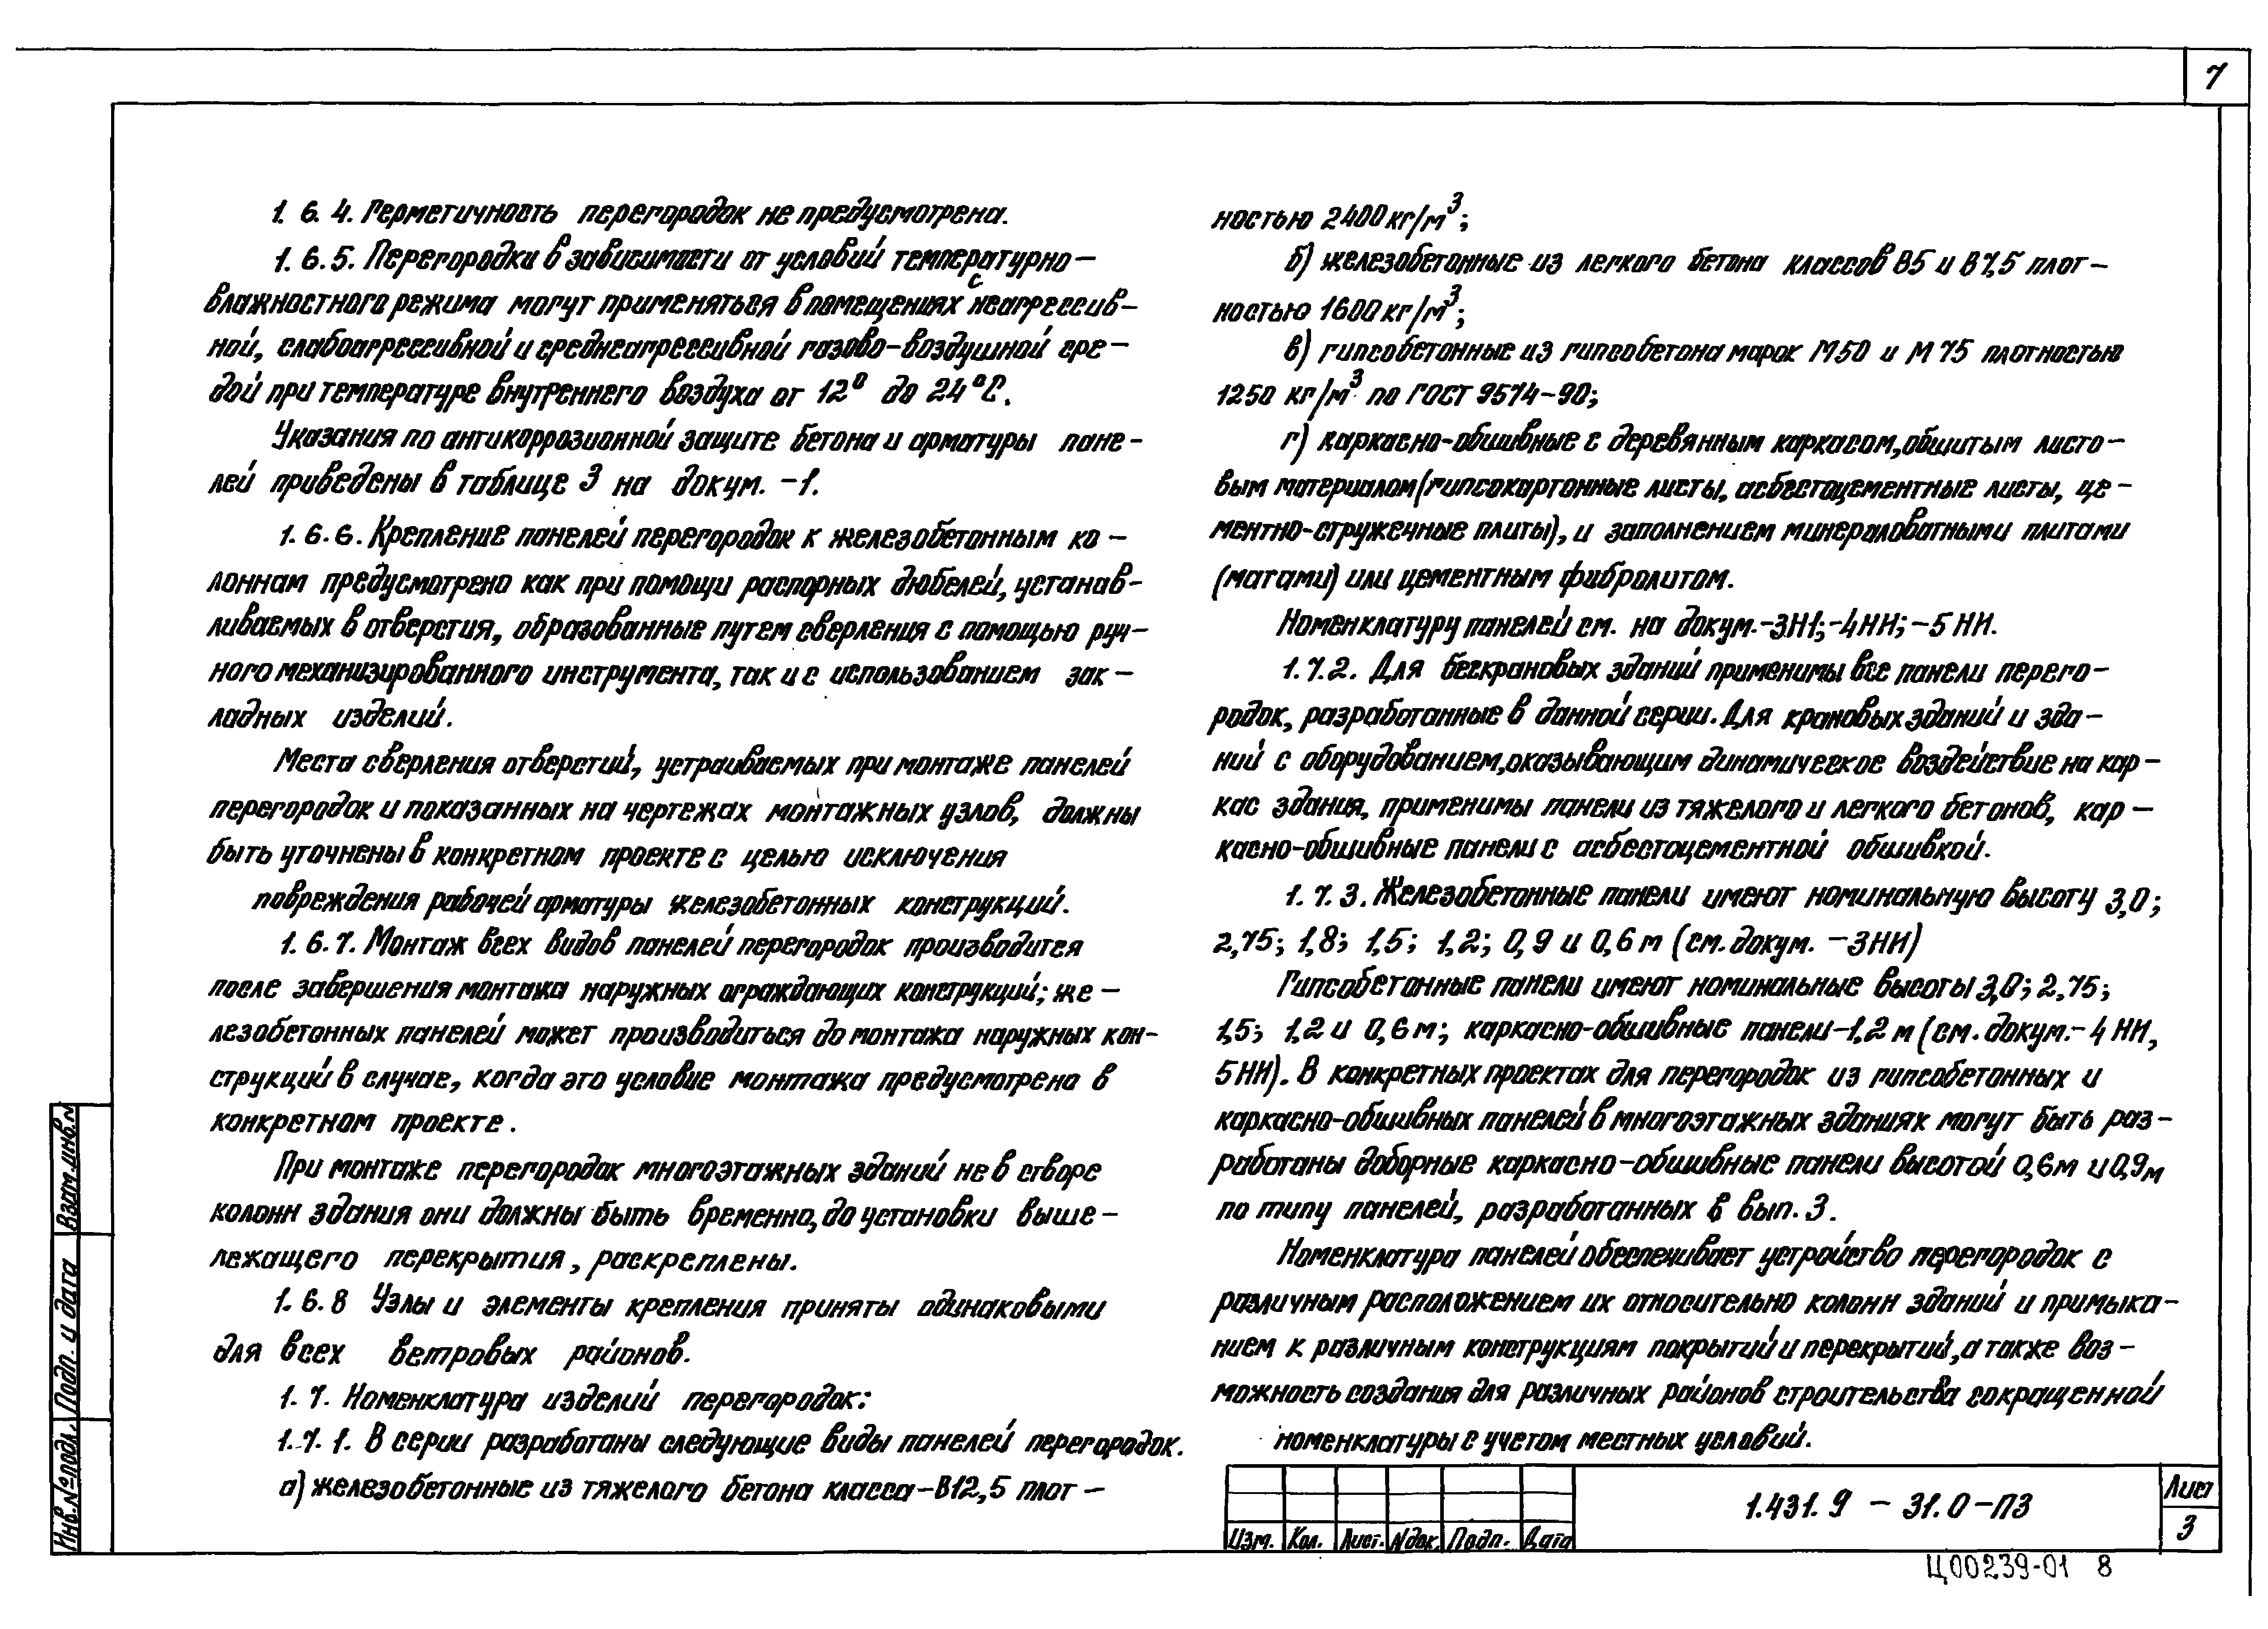 7
1.6.4. Герметичность перегородок не предусмотрена.
1.6.5. Перегородки в зависимости от условий температурно-
влажностного режима могут применяться в помещениях с неагрессив-
ной, слабоагрессивной и среднеагрессивной газово-воздушной сре-
дой при температуре внутреннего воздуха от 12° до 24°С.
Указания по антикоррозионной защите бетона и арматуры пане-
лей приведены в таблице 3 на докум. -1.
1.6.6. Крепление панелей перегородок к железобетонным ко-
лоннам предусмотрено как при помощи распорных дюбелей, устанав-
ливаемых в отверстия, образованные путем сверления с помощью руч-
ного механизированного инструмента, так и с использованием зак-
ладных изделий.
Места сверления отверстий, устраиваемых при монтаже панелей
перегородок и показанных на чертежах монтажных узлов, должны
быть уточнены в конкретном проекте с целью исключения
повреждения рабочей арматуры железобетонных конструкций.
1.6.7. Монтаж всех видов панелей перегородок производится
после завершения монтажа наружных ограждающих конструкций; же-
лезобетонных панелей может производиться до монтажа наружных кон-
струкций в случае, когда это условие монтажа предусмотрено в
конкретном проекте.
При монтаже перегородок многоэтажных зданий не в створе
колонн здания они должны быть временно, до установки выше-
лежащего перекрытия, раскреплены.
1.6.8 Узлы и элементы крепления приняты одинаковыми
для всех ветровых районов.
1.7. Номенклатура изделий перегородок:
1.7.1. В серии разработаны следующие виды панелей перегородок.
а) железобетонные из тяжелого бетона класса-В12,5 плот-
ностью 2400кг/м³;
б) железобетонные из легкого бетона классов В5 и В7,5 плот-
ностью 1600кг/м³;
в) гипсобетонные из гипсобетона марок М50 и М75 плотностью
1250 кг/м³ по ГОСТ 9574-90;
г) каркасно-обшивные с деревянным каркасом, обшитым листо-
вым материалом (гипсокартонные листы, асбестоцементные листы, це-
ментно-стружечные плиты), и заполнением минераловатными плитами
(матами) или цементным фибролитом.
Номенклатуру панелей см. на докум.-3Н1;-4НИ;-5НИ.
1.7.2. Для бескрановых зданий применимы все панели перего-
родок, разработанные в данной серии. Для крановых зданий и зда-
ний с оборудованием, оказывающим динамическое воздействие на кар-
кас здания, применимы панели из тяжелого и легкого бетонов, кар-
касно-обшивные панели с асбестоцементной обшивкой.
1.7.3. Железобетонные панели имеют номинальную высоту 3,0;
2,75; 1,8; 1,5; 1,2; 0,9 и 0,6м (см. докум. -3НИ)
Гипсобетонные панели имеют номинальные высоты 3,0; 2,75;
1,5; 1,2 и 0,6м; каркасно-обшивные панели-1,2м (см. докум.-4НИ,
5НИ). В конкретных проектах для перегородок из гипсобетонных и
каркасно-обшивных панелей в многоэтажных зданиях могут быть раз-
работаны доборные каркасно-обшивные панели высотой 0,6м и 0,9м
по типу панелей, разработанных в вып. 3.
Номенклатура панелей обеспечивает устройство перегородок с
различным расположением их относительно колонн зданий и примыка-
нием к различным конструкциям покрытий и перекрытий, а также воз-
можность создания для различных районов строительства сокращенной
номенклатуры с учетом местных условий.
Инв.№подл. Подп. и дата Взам.инв.N
Изм. Кол. Лист. Nдок. Подп. Дата
1.431.9 - 31.0-ПЗ
Лист
3
Ц00239-01 8